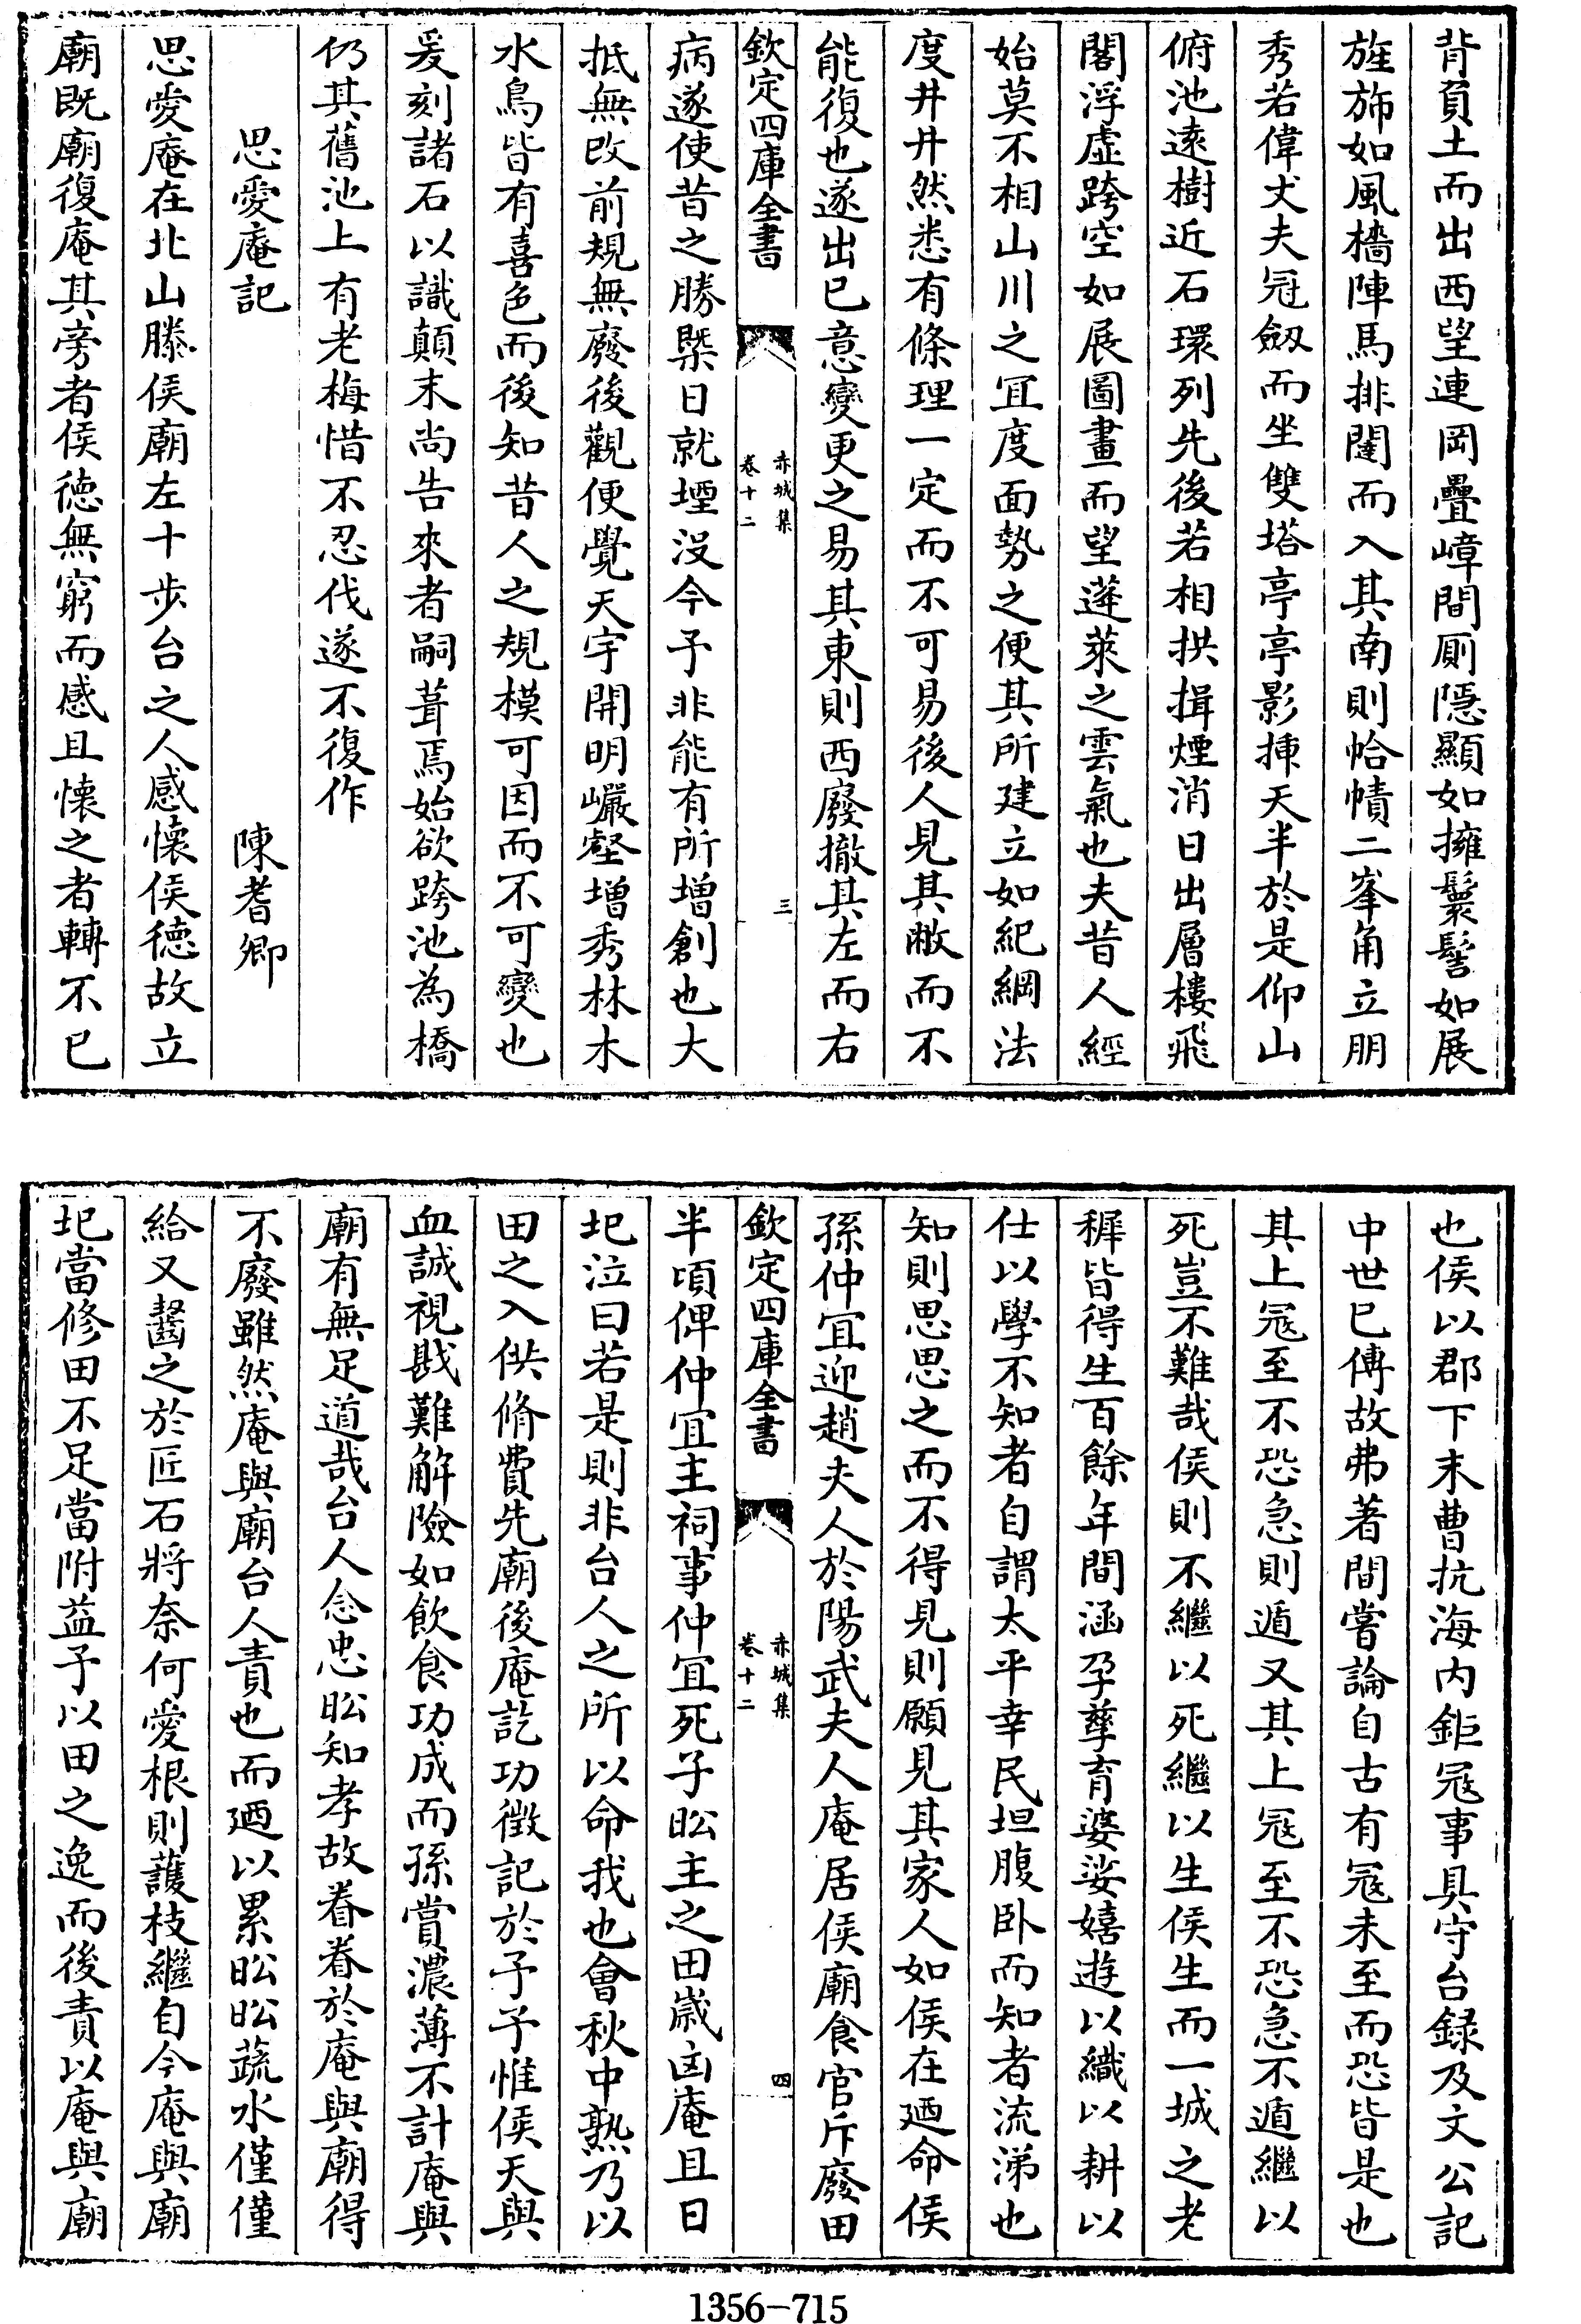 背負土而出西望連岡疊嶂間廁隱顯如擁鬟髻如展
旌斾如風檣陣馬排闥而入其南則帢幘二峯角立朋
秀若偉丈夫冠劔而坐雙塔亭亭影挿天半於是仰山
俯池逺樹近石環列先後若相拱揖煙消日出層樓飛
閣浮虛跨空如展圖畫而望蓬萊之雲氣也夫昔人經
始莫不相山川之宜度面勢之便其所建立如紀綱法
度井井然悉有條理一定而不可易後人見其敝而不
能復也遂出已意變更之易其東則西廢撤其左而右
欽定四庫全書
赤城集
卷十二
三
病遂使昔之勝槩日就堙沒今予非能有所增創也大
抵無改前規無廢後觀便覺天宇開明巖壑增秀林木
水鳥皆有喜色而後知昔人之規模可因而不可變也
爰刻諸石以識顛末尚告來者嗣葺焉始欲跨池為橋
仍其舊池上有老梅惜不忍伐遂不復作
思愛庵記 陳耆卿
思愛庵在北山滕侯廟左十步台之人感懷侯德故立
廟既廟復庵其旁者侯德無窮而感且懷之者轉不已
也侯以郡下末曹抗海內鉅冦事具守台録及文公記
中世已傳故弗著間嘗論自古有冦未至而恐皆是也
其上冦至不恐急則遁又其上冦至不恐急不遁繼以
死豈不難哉侯則不繼以死繼以生侯生而一城之老
穉皆得生百餘年間涵孕孳育婆娑嬉遊以織以耕以
仕以學不知者自謂太平幸民坦腹卧而知者流涕也
知則思思之而不得見則願見其家人如侯在廼命侯
孫仲宜迎趙夫人於陽武夫人庵居侯廟食官斥廢田
欽定四庫全書
赤城集
卷十二
四
半頃俾仲宜主祠事仲宜死子昖主之田嵗凶庵且日
圯泣曰若是則非台人之所以命我也會秋中熟乃以
田之入供脩費先廟後庵訖功徴記於予予惟侯天與
血誠視戡難解險如飲食功成而孫賞濃薄不計庵與
廟有無足道哉台人念忠昖知孝故眷眷於庵與廟得
不廢雖然庵與廟台人責也而廼以累昖昖蔬水僅僅
給又醫之於匠石將奈何愛根則護枝繼自今庵與廟
圯當修田不足當附益予以田之逸而後責以庵與廟
1356-715